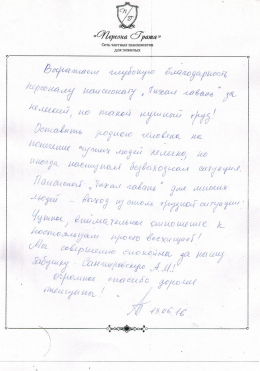 «Персона Грата»
Сеть частных пансионатов
для пожилых
Выражаем глубокую благодарность
персоналу пансионату "Тихая гавань" за
нелегкий, но такой нужный труд!
Оставить родного человека на
попечение чужих людей нелегко, но
иногда наступает безвыходная ситуация.
Пансионат "Тихая гавань" для многих
людей – выход из этой трудной ситуации.
Чуткое, внимательное отношение к
постояльцам просто восхищает!
Мы совершенно спокойны за нашу
бабушку - А.М!
Огромное спасибо дорогие
женщины!
17.06.16